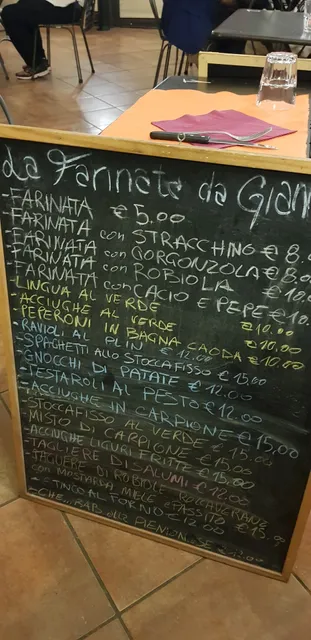 La Farinata da Gian
-FARINATA €5,00
-FARINATA con STRACCHINO €8,
-FARINATA con GORGONZOLA €8,0
-FARINATA con ROBIOLA €10,
-FARINATA con CACIO E PEPE €10,
-LINGUA AL VERDE €10,00
-ACCIUGHE AL VERDE €10,00
-PEPERONI IN BAGNA CAODA €10,00
-RAVIOLI AL PLIN €12,00
-SPAGHETTI ALLO STOCCAFISSO €15,00
-GNOCCHI DI PATATE €12,00
-TESTAROLI AL PESTO €12,00
-ACCIUGHE IN CARPIONE €15,00
-STOCCAFISSO AL VERDE €15,00
-MISTO DI CARPIONE €15,00
-ACCIUGHE LIGURI FRITTE €15,00
-TAGLIERE DI SALUMI €12,00
DI ROBIOLE ROCCAVERANO
con MOSTARDA, MIELE
TINCO AL FORNO €12,00